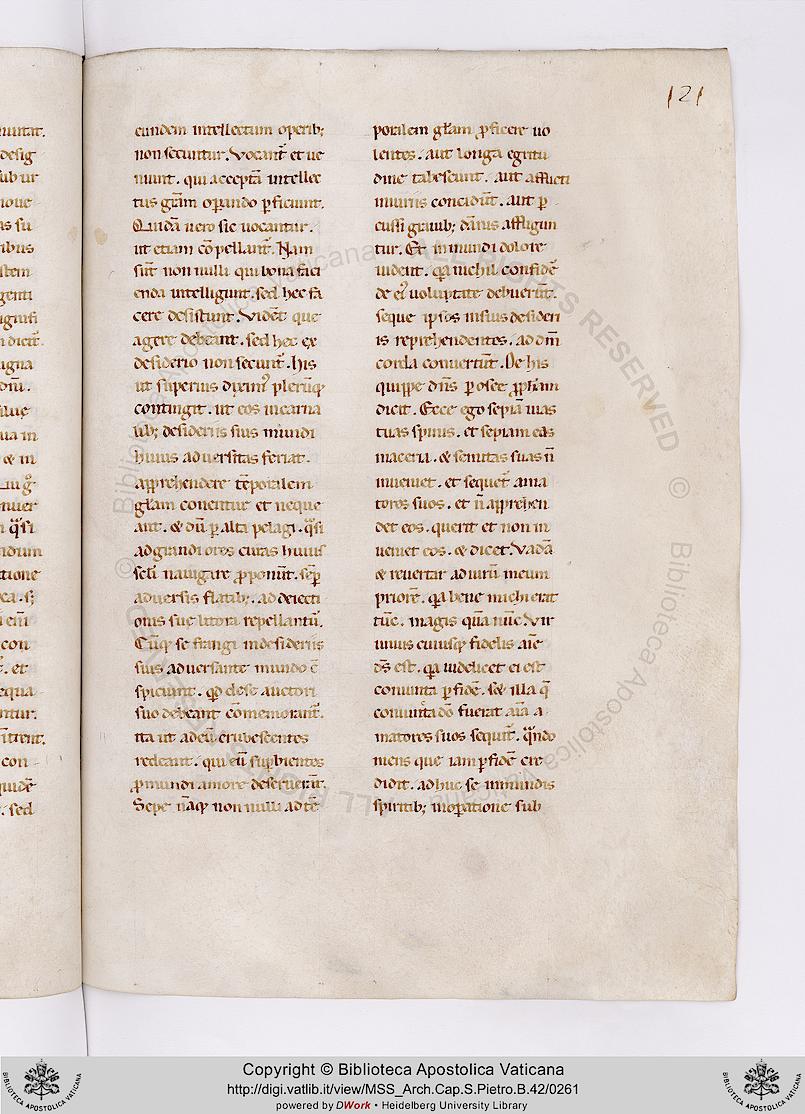 121
eundem intellectum operib;
non secuntur. Vocant̃ et ue
niunt. qui acceptā intellec
tus gr̄am operando ꝑficiunt.
Quidā uero sic uocantur.
ut etiam cōpellant̃. Nam
sūt non nulli qui bona faci
enda intelligunt. sed hec fa
cere desistunt. Vidēt que
agere debeant. sed hec ex
desiderio non secunt̃. his
ut superius diximꝰ plerūq;
contingit. ut eos in carna
lib; desideriis suis mundi
huius aduersitas feriat.
apprehendere tēporalem
gl̄am conentur et neque
ant. & dū ꝑ alta pelagi. q̃si
ad grandiores curas huius
sc̄li nauigare ꝓponūt. semꝑ
aduersis flatib; . ad deiecti
onis sue litora repellantur̃.
Cūq; se frangi in desideriis
suis aduersante mundo cō
spiciunt. qd̄ de se auctori
suo debeant cōmemorant̃.
ita ut ad eū erubescentes
redeant. qui eū suꝑbientes
ꝓ mundi amore deseruerant̃.
Sepe nāq; non nulli ad tē
poralem gl̄am ꝓficere uo
lentes. aut longa egritu
dine tabescunt. aut afflicti
iniuriis concidūt. aut ꝑ
cussi grauib; dānis affligun
tur. Et in mundi dolore
uident. qa nichil confidē
de eiꝰ uoluptate debuerūt.
seque ipsos in suis desideri
is reprehendentes. ad dm̄
corda conuertūt. De his
quippe dn̄s ꝑ osee ꝓph̄am
dicit. Ecce ego sepiā uias
tuas spinis. et sepiam eas
maceria. & semitas suas n̄
inueniet. et sequet̃ ama
tores suos. et n̄ apprehen
det eos. querit et non in
ueniet eos. & dicet. Vadā
& reuertar ad uirū meum
priorē. qa bene michi erat
tūc. magis quā nūc. Vir
unius cuiusq; fidelis aīe
d̄s est. qa uidelicet ei est
coniuncta ꝑ fidē. Sed illa q̄
coniuncta dō fuerat aīa a
matores suos sequit̃. q̃ndo
mens que iam ꝑ fidem cre
didit. adhuc se inmundis
spiritib; in oꝑatione sub
© Biblioteca Apostolica Vaticana ALL RIGHTS RESERVED
Copyright © Biblioteca Apostolica Vaticana
http://digi.vatlib.it/view/MSS_Arch.Cap.S.Pietro.B.42/0261
powered by DWork • Heidelberg University Library
BIBLIOTECA APOSTOLICA VATICANA
BIBLIOTECA APOSTOLICA VATICANA